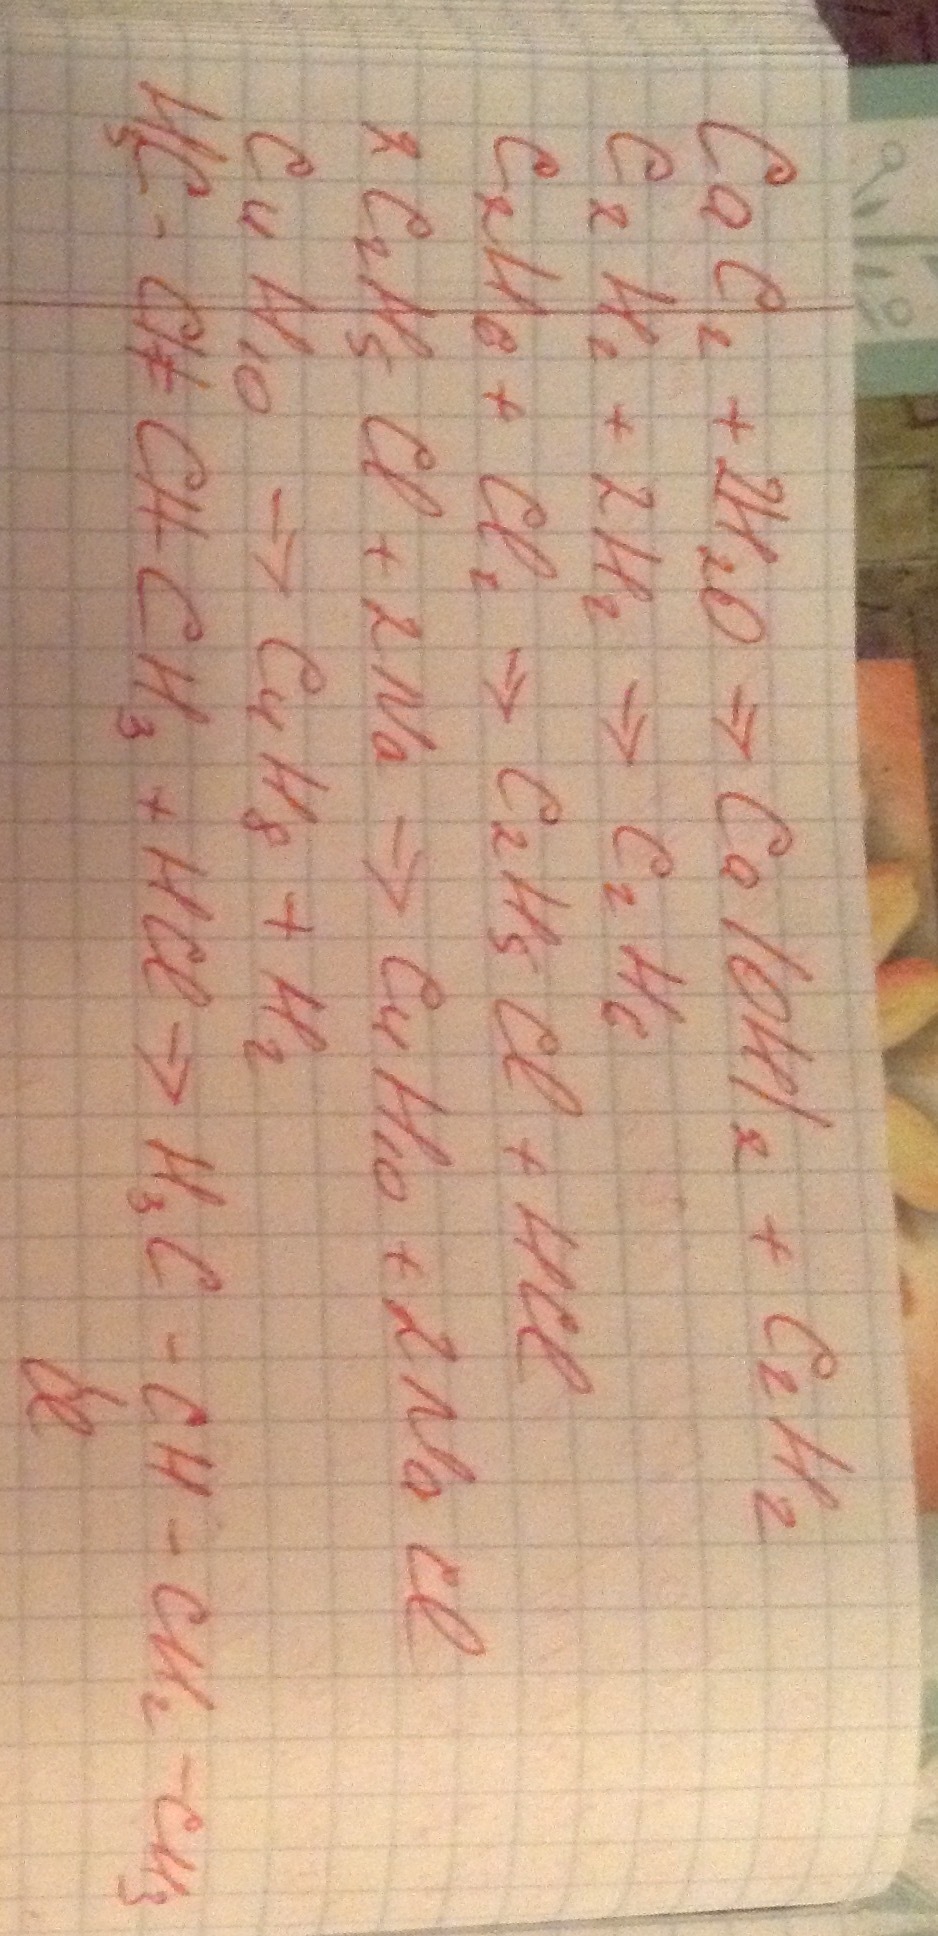 CaC₂ + 2H₂O ⇒ Ca(OH)₂ + C₂H₂
C₂H₂ + 2H₂ ⇒ C₂H₆
C₂H₆ + Cl₂ ⇒ C₂H₅Cl + HCl
2C₂H₅Cl + 2Na ⇒ C₄H₁₀ + 2NaCl
C₄H₁₀ ⇒ C₄H₈ + H₂
H₃C - CH = CH - CH₃ + HCl ⇒ H₃C - CH - CH₂ - CH₃
Cl